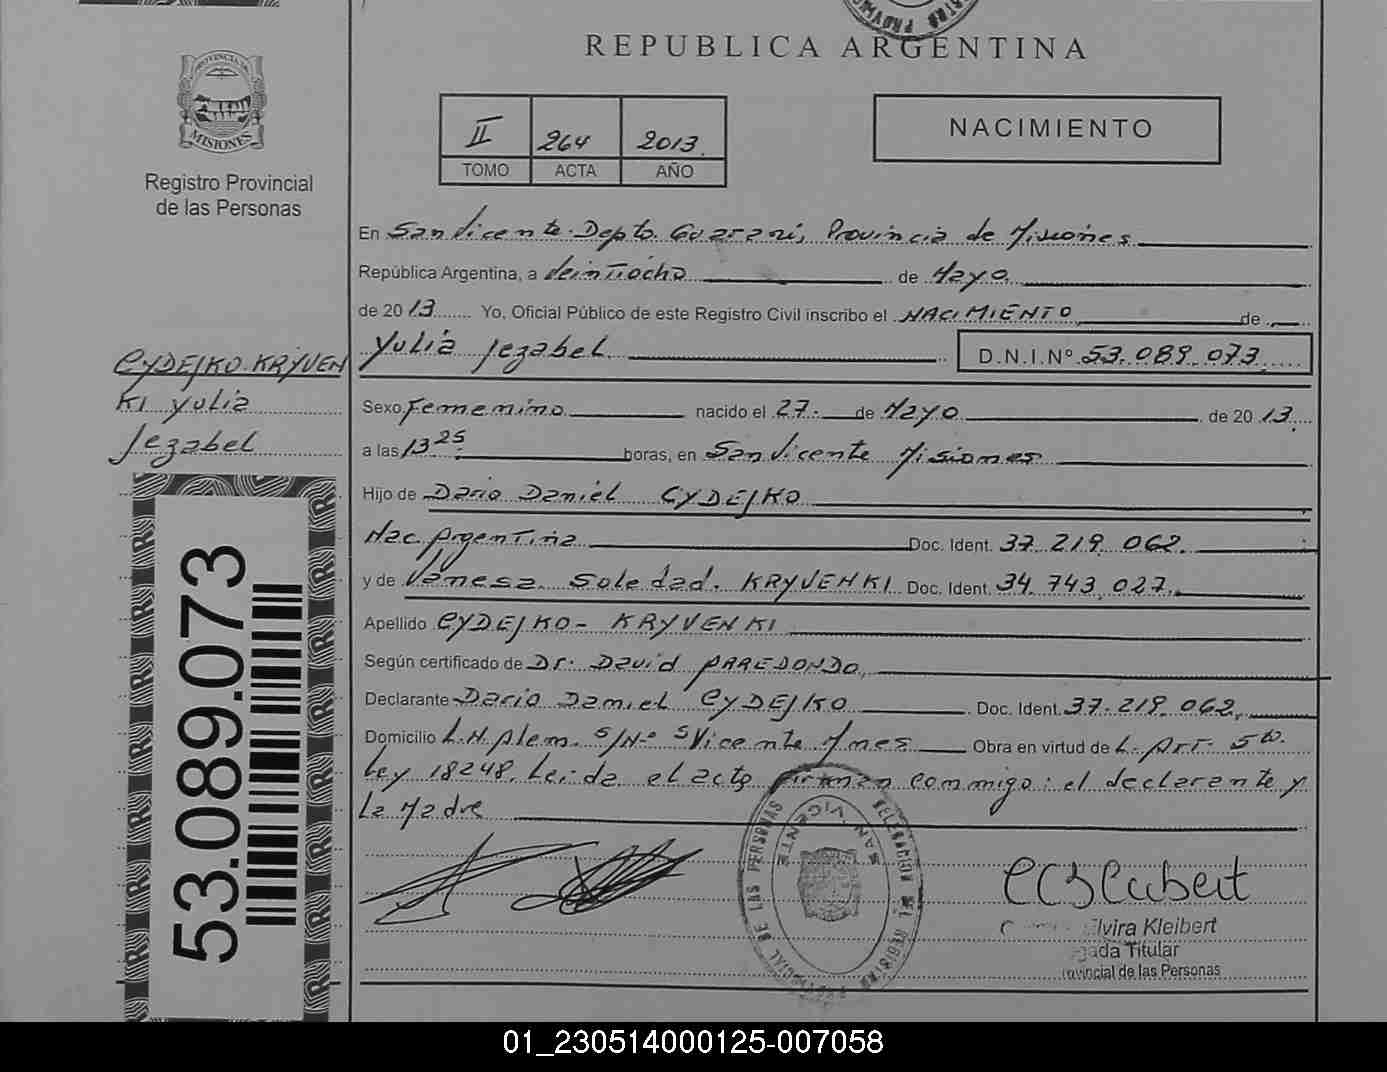 REPUBLICA ARGENTINA
PROVINCIA DE
MISIONES
Registro Provincial
de las Personas
II 264 2013.
TOMO ACTA AÑO
NACIMIENTO
En San Vicente. Depto. Guarani, Provincia de Misiones
República Argentina, a Veintiocho de Mayo
de 2013 Yo, Oficial Público de este Registro Civil inscribo el NACIMIENTO de
Yulia Jezabel D.N.I.Nº 53.089.073
CYDEJKO KRYVEN
KI Yulia
Jezabel
Sexo Femenino nacido el 27. de Mayo de 2013.
a las 13 25 horas, en San Vicente Misiones
Hijo de Dario Daniel CYDEJKO
Nac. Argentina Doc. Ident. 37.219.062.
y de Vanesa Soledad. KRYVENKI Doc. Ident. 34.743.027.
Apellido CYDEJKO- KRYVENKI
Según certificado de Dr. David ARREDONDO
Declarante Dario Daniel CYDEJKO Doc. Ident. 37.219.062.
Domicilio L.N. Alem. S/Nº S Vicente Mnes Obra en virtud de L. Art. 5to.
Ley 18248. Leida el acta firman conmigo: el declarante y
la Madre
53.089.073
DELEGACION DEL REGISTRO PROVINCIAL DE LAS PERSONAS
SAN VICENTE
Elvira Kleibert
Titular
Provincial de las Personas
01_230514000125-007058